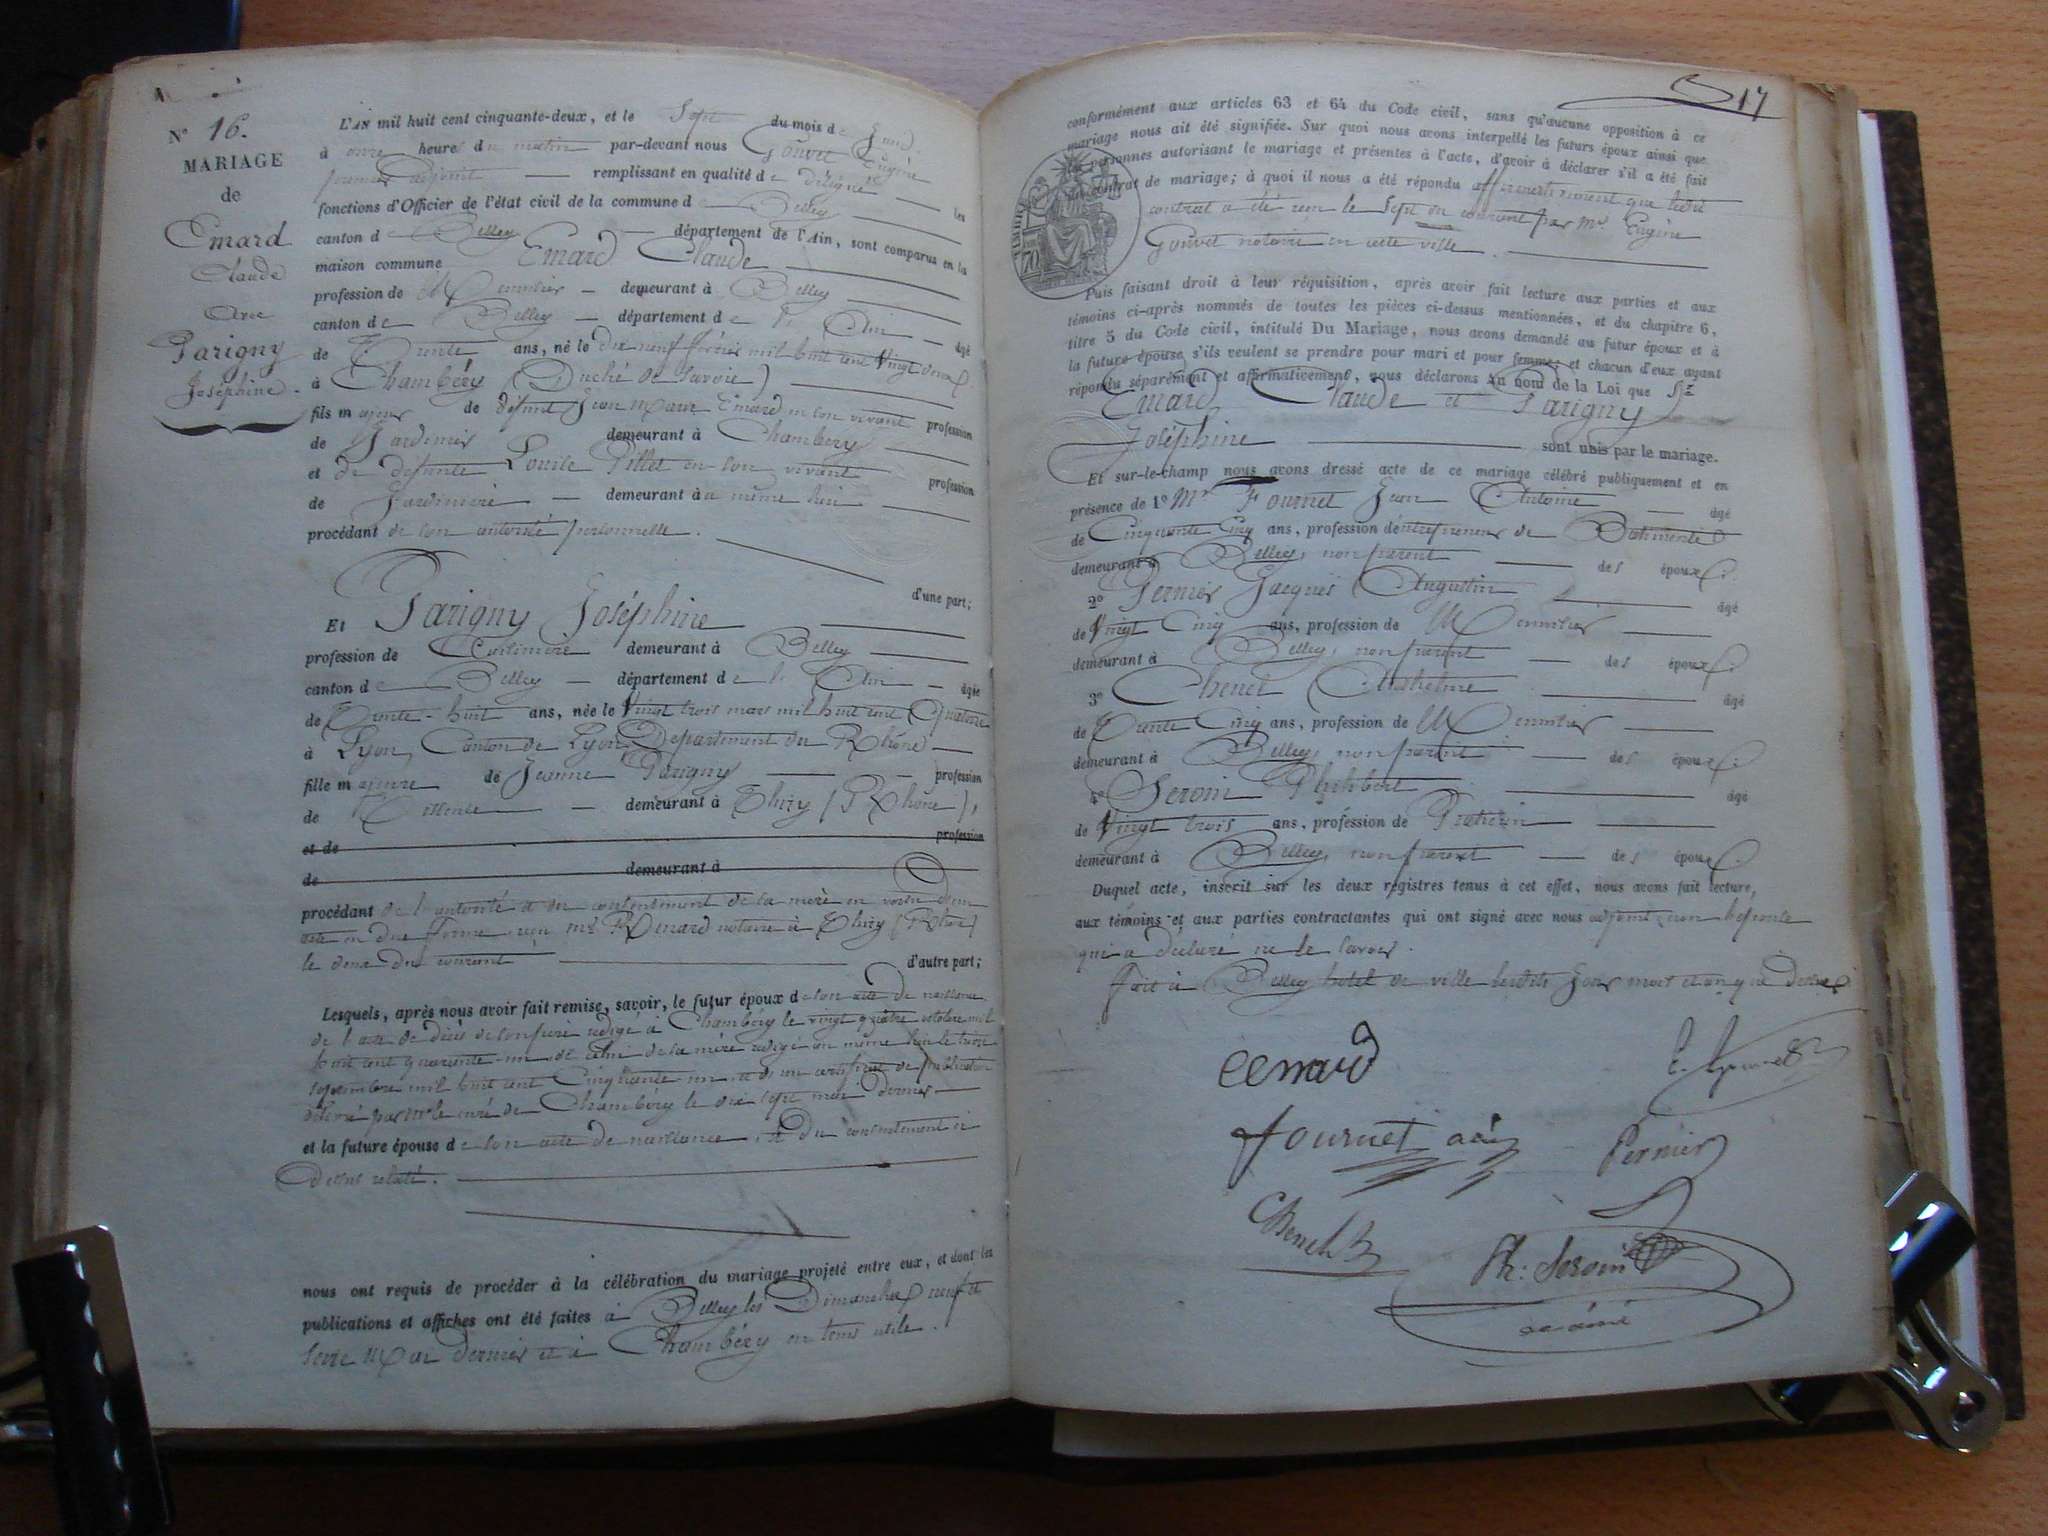 N° 16.
MARIAGE
de
Emard
Claude
Avec
Parigny
Joséphine.
L'AN mil huit cent cinquante-deux, et le Sept du mois de Juin
à onze heures du matin par-devant nous Gouvet Eugène
premier adjoint remplissant en qualité de délégué les
fonctions d'Officier de l'état civil de la commune de Belley
canton de Belley département de l'Ain, sont comparus en la
maison commune Emard Claude
profession de Menuisier demeurant à Belley
canton de Belley département de l' Ain âgé
de Trente ans, né le dix neuf février mil huit cent Vingt deux
à Chambéry (Duché de Savoie)
fils majeur de défunt Jean Marie Emard en son vivant profession
de Jardinier demeurant à Chambéry
et de défunte Louise Pillet en son vivant profession
de Jardinière demeurant au même lieu
procédant de son autorité personnelle.
d'une part;
Et Parigny Joséphine
profession de Cuisinière demeurant à Belley
canton de Belley département de l' Ain âgée
de Trente-huit ans, née le Vingt trois mars mil huit cent Quatorze
à Lyon, Canton de Lyon, Département du Rhône
fille majeure de Jeanne Parigny profession
de demeurant à Thizy (Rhône),
et de profession
de demeurant à
procédant de l'autorité et du consentement de sa mère en vertu d'un
acte en due forme reçu Me Renard notaire à Thizy (Rhône)
le deux du courant d'autre part;
Lesquels, après nous avoir fait remise, savoir, le futur époux de son acte de naissance
de l'acte de décès de son père rédigé à Chambéry le vingt quatre octobre mil
huit cent quarante-un et celui de sa mère rédigé au même lieu le treize
septembre mil huit cent Cinquante un et d'un certificat de publication
délivré par Mr le curé de Chambéry le dix sept mai dernier
et la future épouse de son acte de naissance, et du consentement ci
dessus relaté.
nous ont requis de procéder à la célébration du mariage projeté entre eux, et dont les
publications et affiches ont été faites à Belley les Dimanches neuf et
seize Mai dernier et à Chambéry en tems utile.
17
conformément aux articles 63 et 64 du Code civil, sans qu'aucune opposition à ce
mariage nous ait été signifiée. Sur quoi nous avons interpellé les futurs époux ainsi que
les personnes autorisant le mariage et présentes à l'acte, d'avoir à déclarer s'il a été fait
un contrat de mariage; à quoi il nous a été répondu affirmativement que ledit
contrat a été reçu le Sept du courant par Me Eugène
Gouvet notaire en cette ville.
Puis faisant droit à leur réquisition, après avoir fait lecture aux parties et aux
témoins ci-après nommés de toutes les pièces ci-dessus mentionnées, et du chapitre 6,
titre 5 du Code civil, intitulé Du Mariage, nous avons demandé au futur époux et à
la future épouse s'ils veulent se prendre pour mari et pour femme; et chacun d'eux ayant
répondu séparément et affirmativement, nous déclarons au nom de la Loi que Sr
Emard Claude et Parigny
Joséphine sont unis par le mariage.
Et sur-le-champ nous avons dressé acte de ce mariage célébré publiquement et en
présence de 1° Mr Fournet Jean Antoine âgé
de Cinquante Cinq ans, profession d'entrepreneur de Batiments
demeurant à Belley, non parent des époux.
2° Pernier Jacques Augustin âgé
de Vingt Cinq ans, profession de Menuisier
demeurant à Belley, non parent des époux.
3° Chenel Anthelme âgé
de Trente Cinq ans, profession de Menuisier
demeurant à Belley, non parent des époux.
4° Seroin Philibert âgé
de Vingt trois ans, profession de Praticien
demeurant à Belley, non parent des époux.
Duquel acte, inscrit sur les deux registres tenus à cet effet, nous avons fait lecture,
aux témoins et aux parties contractantes qui ont signé avec nous adjoint, non l'épouse
qui a déclaré ne le savoir.
Fait à Belley hôtel de ville lesdits Jour mois et an que dessus
Cemard
E. Gouvet
fournet ainé
Pernier
Chenel
Ph: Seroin
ainé